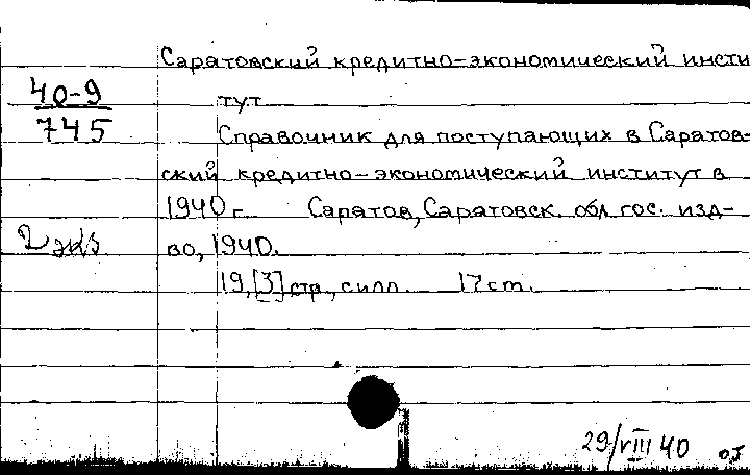 Саратовский кредитно-экономический инсти
40-9
тут
745
Справочник для поступающих в Саратов-
ский кредитно-экономический институт в
1940 г. Саратов, Саратовск. обл. гос. изд-
2 экз.
во, 1940.
19, [3] стр., с илл. 17 cm.
29/VIII 40